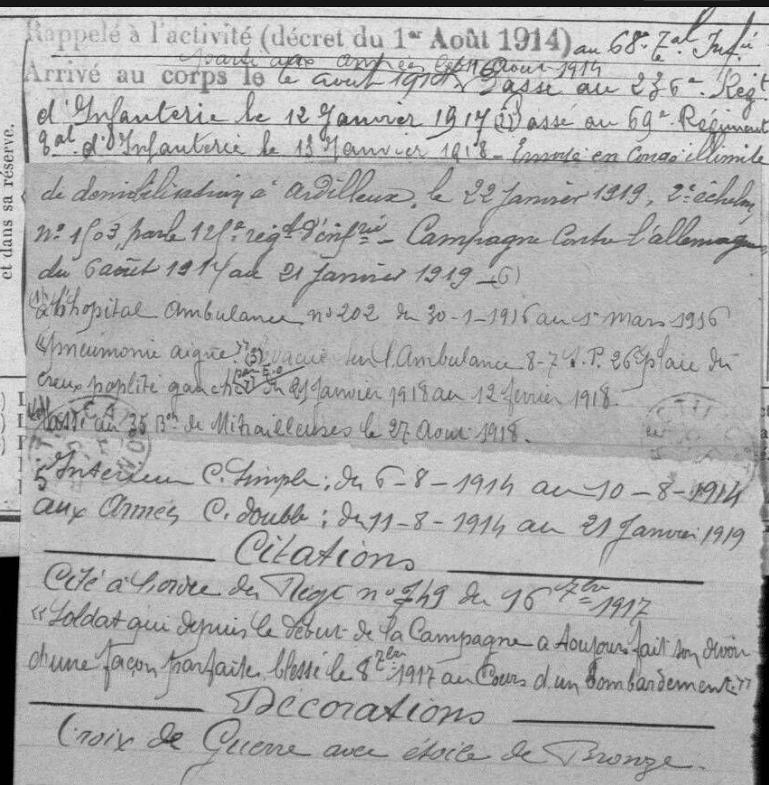 Rappelé à l'activité (décret du 1er Août 1914) au 68e Rgt al Inf ie
partie aux armées le 11 Août 1914
Arrivé au corps le 6 août 1914. Passé au 236e Régt
d'Infanterie le 12 Janvier 1917 Passé au 69e Régiment
al d'Infanterie le 13 Janvier 1918 - Envoyé en Congé illimité
de démobilisation à Ardilleux, le 22 Janvier 1919, 2e échelon
no 1503, par le 125e régt d'infrie - Campagne Contre l'allemagne
du 6 août 1914 au 21 Janvier 1919 - (6)
(1) à l'hopital Ambulance no 202 du 30-1-1916 au 1er mars 1916
"pneumonie aigue" (3) évacué sur l'Ambulance 8-7 S.P. 26 plaie du
creux poplité gauche du 21 Janvier 1918 au 12 fevrier 1918.
Passé au 35 Bon de Mitrailleuses le 27 Aout 1918.
Interieur C. Simple : du 6-8-1914 au 10-8-1914
aux Armées C. double : du 11-8-1914 au 21 Janvier 1919
Citations
Cité à l'ordre du Régt no 749 du 16 7bre 1917
"Soldat qui depuis le début de la Campagne a toujours fait son devoir
d'une façon parfaite, blessé le 8 7bre 1917 au Cours d'un bombardement."
Décorations
Croix de Guerre avec étoile de Bronze.
et dans sa réserve.